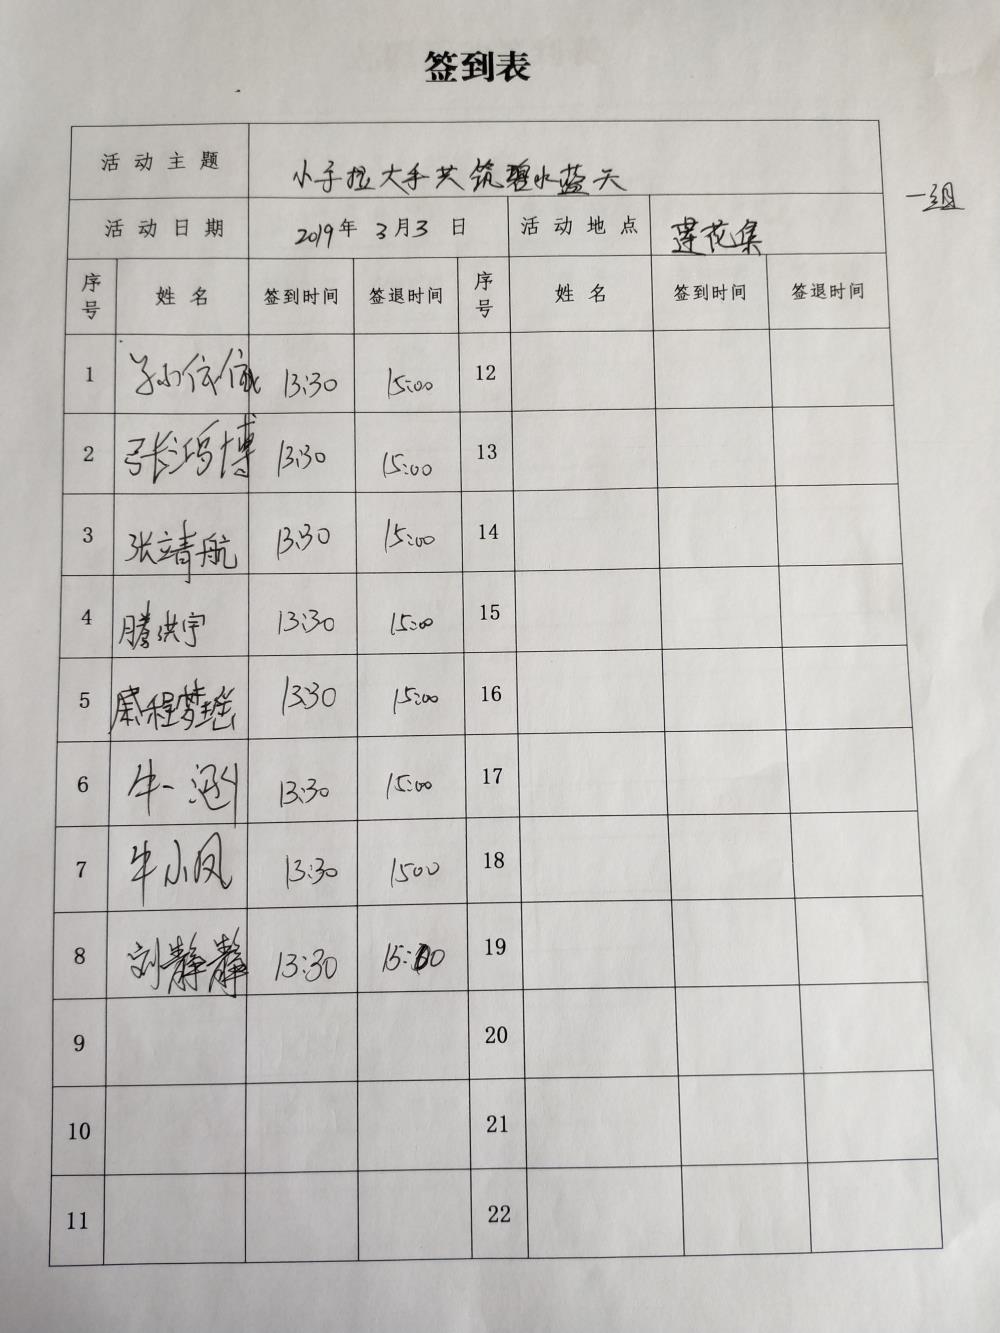 签到表
活动主题 小手拉大手共筑碧水蓝天
一组
活动日期 2019年 3月3日 活动地点 莲花集
序号 姓名 签到时间 签退时间 序号 姓名 签到时间 签退时间
1 孙依依 13:30 15:00 12
2 张鸿博 13:30 15:00 13
3 张靖航 13:30 15:00 14
4 腾洪宇 13:30 15:00 15
5 程梦瑶 13:30 15:00 16
6 牛一涵 13:30 15:00 17
7 牛小凤 13:30 1500 18
8 刘静静 13:30 15:00 19
9 20
10 21
11 22